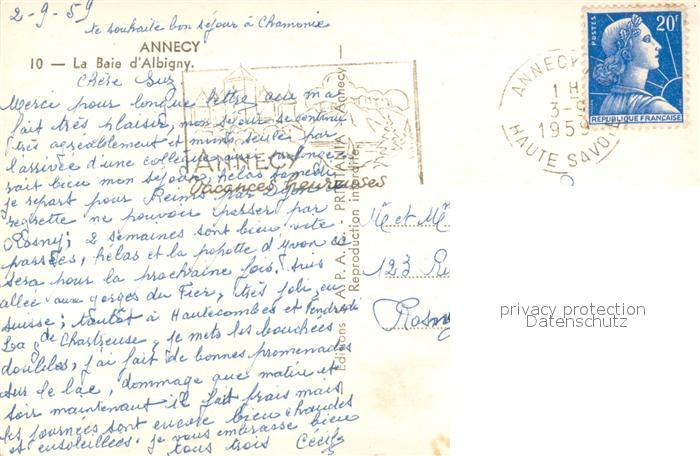 2-9-59
te souhaite bon séjour à Chamonix
ANNECY
10 — La Baie d'Albigny.
Chère Suz
Merci pour longue lettre qui m'a
fait très plaisir, mon séjour se continue
très agréablement et moins seule par
l'arrivée d'une collègue,
mon séjour, hélas samedi
je repart pour Reims par Dijon
regrette ne pouvoir passer par
Rosny; 2 semaines sont bien vite
passées, hélas et la popotte d'Yvon ce
sera pour la prochaine fois. Suis
allée aux gorges du Fier, très joli, en
Suisse; tantôt à Hautecombes et
La Chartreuse, je mets les bouchées
doubles, j'ai fait de bonnes promenades
sur le lac, dommage que matin et
soir maintenant il fait frais mais
les journées sont encore bien chaudes
et ensoleillées. je vous embrasse bien
tous trois Cécile
ANNECY
Vacances heureuses
Editions A. P. A. - PRINTANIA - Annecy
Reproduction interdite
POSTES
20F
REPUBLIQUE FRANÇAISE
ANNECY
1 H
3-9
1959
HAUTE SAVOIE
Mr et Mme
123 Ru
Rosny
privacy protection
Datenschutz